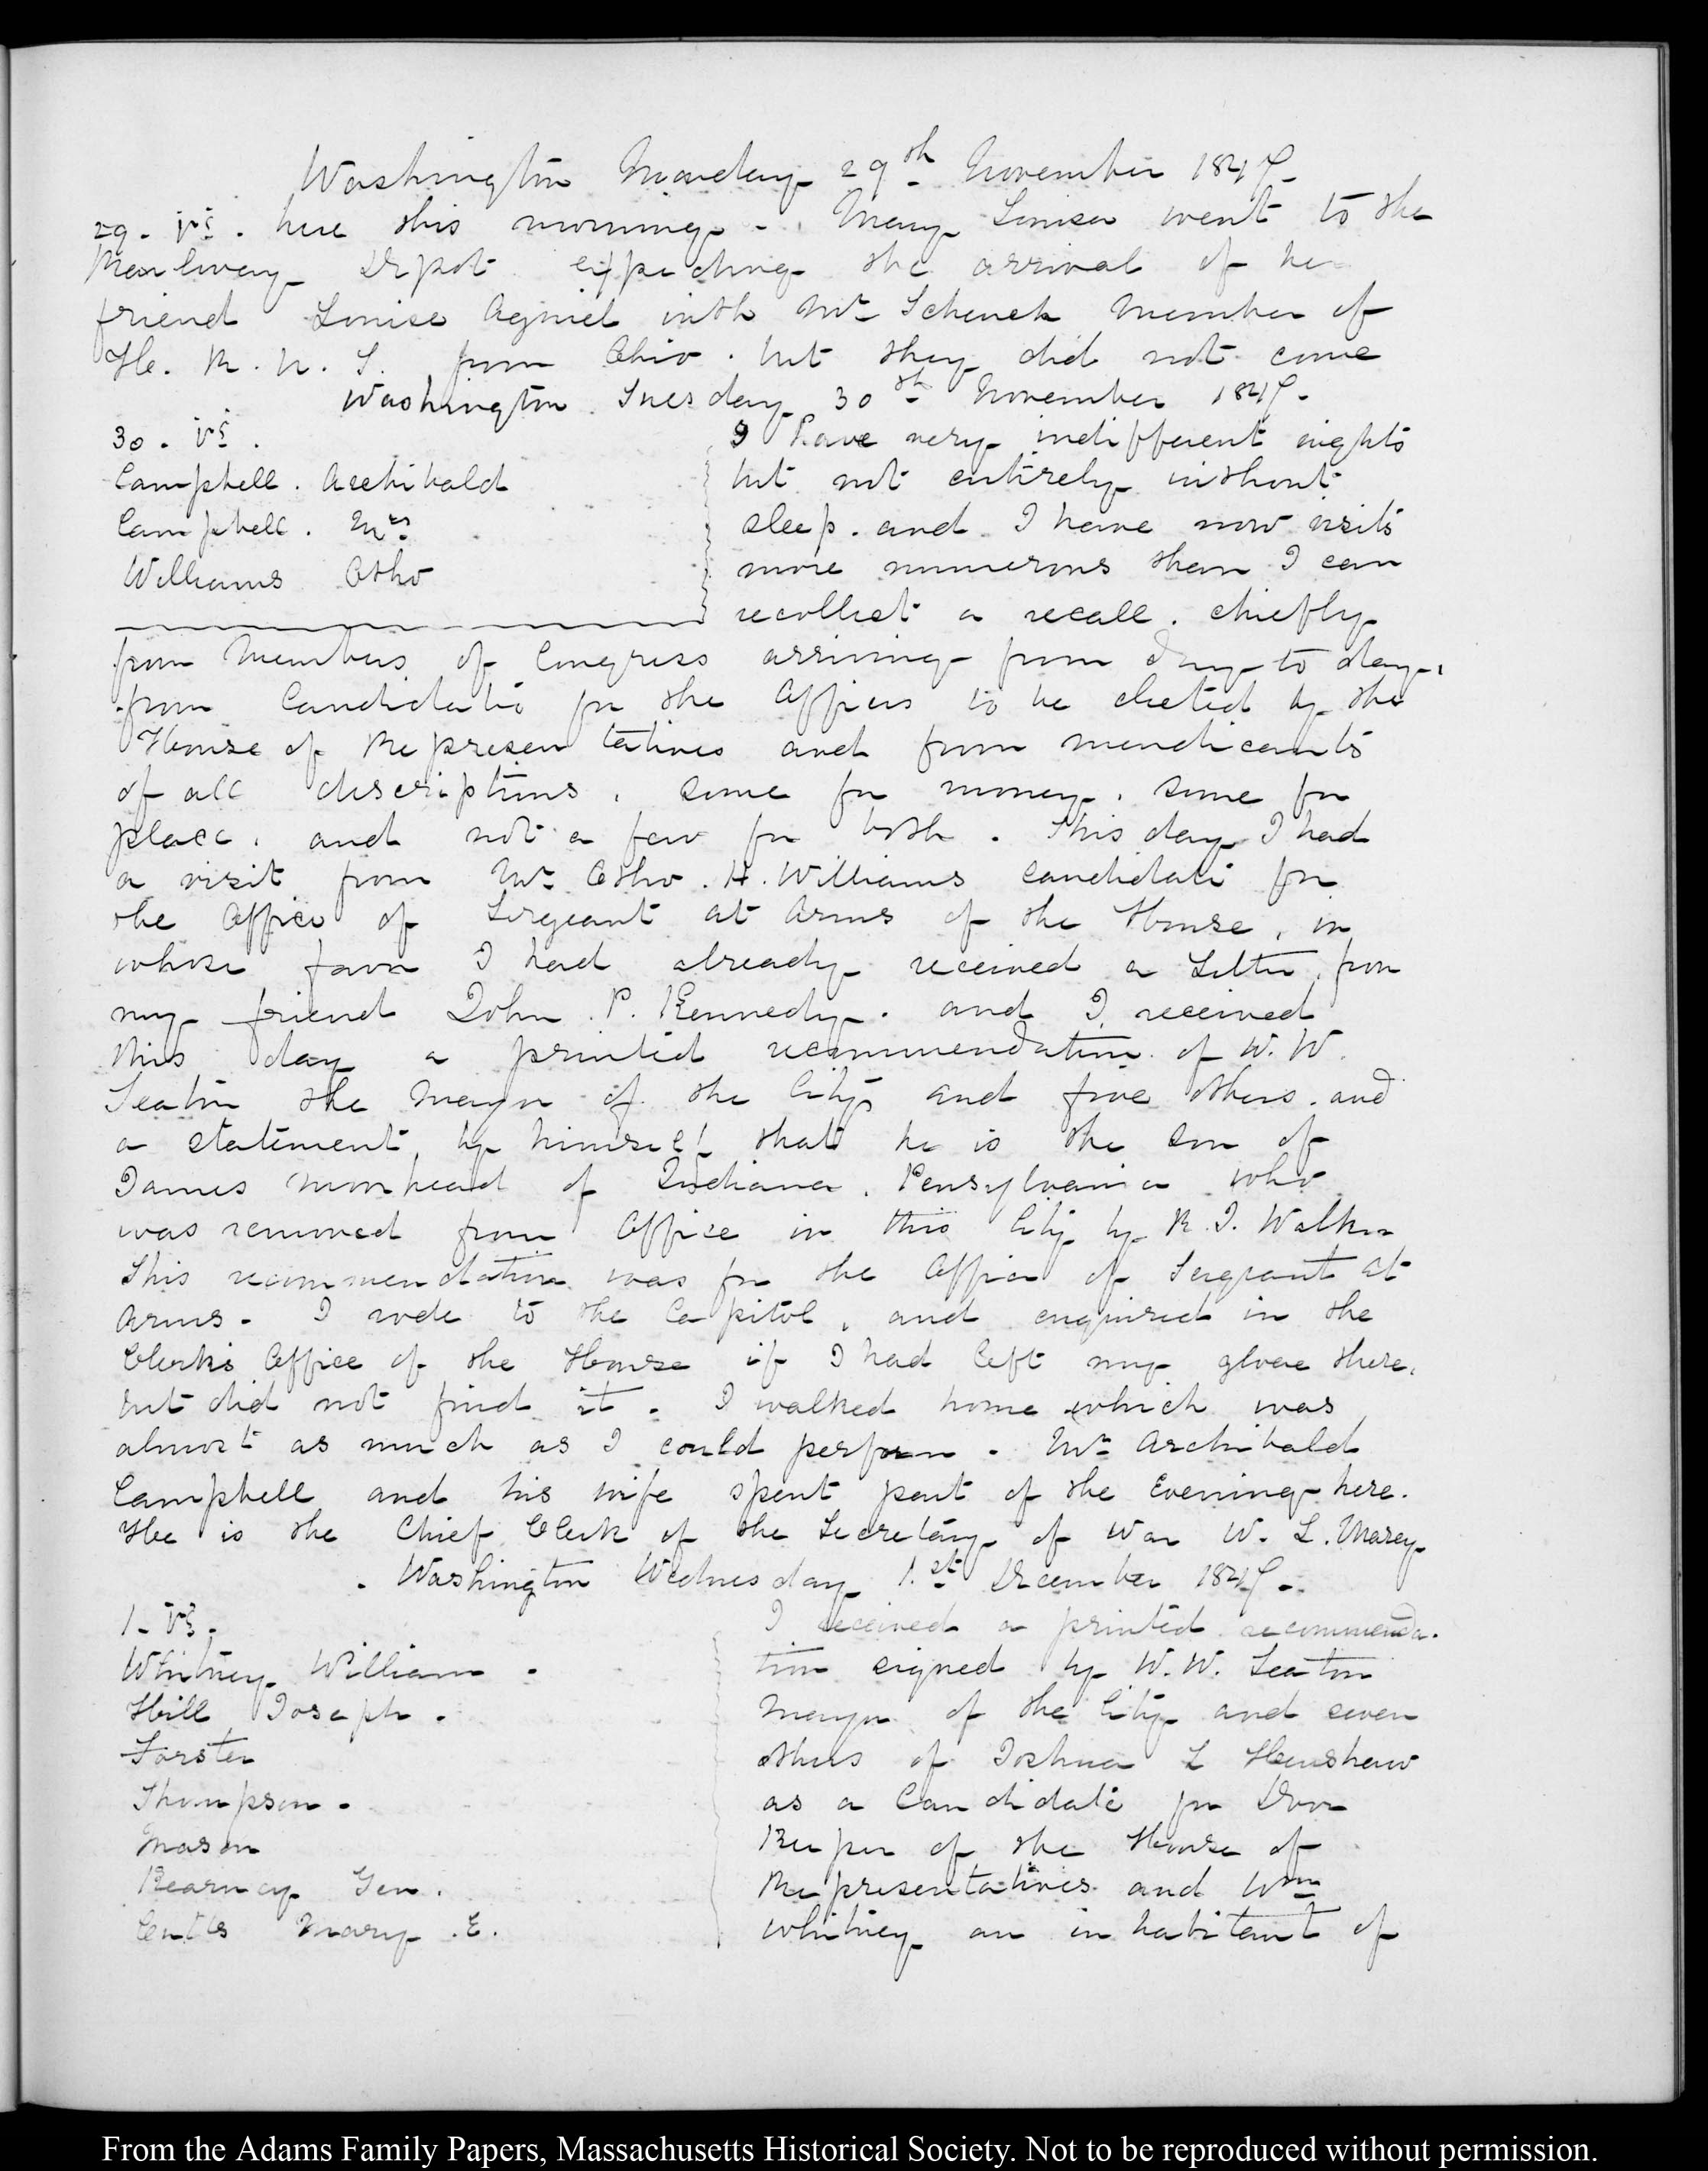 Washington Monday 29th November 1847.
29. V:s. here this morning. Mary Louisa went to the
Railway Depot expecting the arrival of her
friend Louise Agniel with Mr Schenck Member of
He. R. U. S. from Ohio. but they did not come
Washington Tuesday 30th November 1847.
30. V:s.
Campbell. Archibald
Campbell. Mrs
Williams Otho
I have very indifferent nights
but not entirely without
sleep. and I have now visits
more numerous than I can
recollect or recall. chiefly
from Members of Congress arriving from day to day,
from Candidates for the Offices to be elected by the
House of Representatives and from mendicants
of all descriptions, some for money, some for
place, and not a few for both. This day I had
a visit from Mr Otho. H. Williams candidate for
the Office of Sergeant at Arms of the House, in
whose favor I had already received a Letter from
my friend John. P. Kennedy. and I received
this day a printed recommendation of W. W.
Seaton the Mayor of the City and five others. and
a statement by himself that he is the son of
James Moorhead of Indiana, Pensylvania who
was removed from Office in this City by R. J. Walker
This recommendation was for the Office of Sergeant at
Arms. I rode to the Capitol, and enquired in the
Clerks Office of the House if I had left my glove there,
but did not find it. I walked home which was
almost as much as I could perform. Mr Archibald
Campbell and his wife spent part of the Evening here.
He is the Chief Clerk of the Secretary of War W. L. Marcy
Washington Wednesday 1.st December 1847.
1. V:s.
Whitney William.
Hill Joseph.
Forster
Thompson.
Mason
Kearney Gen.
Cutts Mary. E.
I received a printed recommenda-
tion signed by W. W. Seaton
Mayor of the City and seven
others of Joshua L Henshaw
as a Candidate for Door
Keeper of the House of
Representatives and Wm
Whitney an inhabitant of
From the Adams Family Papers, Massachusetts Historical Society. Not to be reproduced without permission.